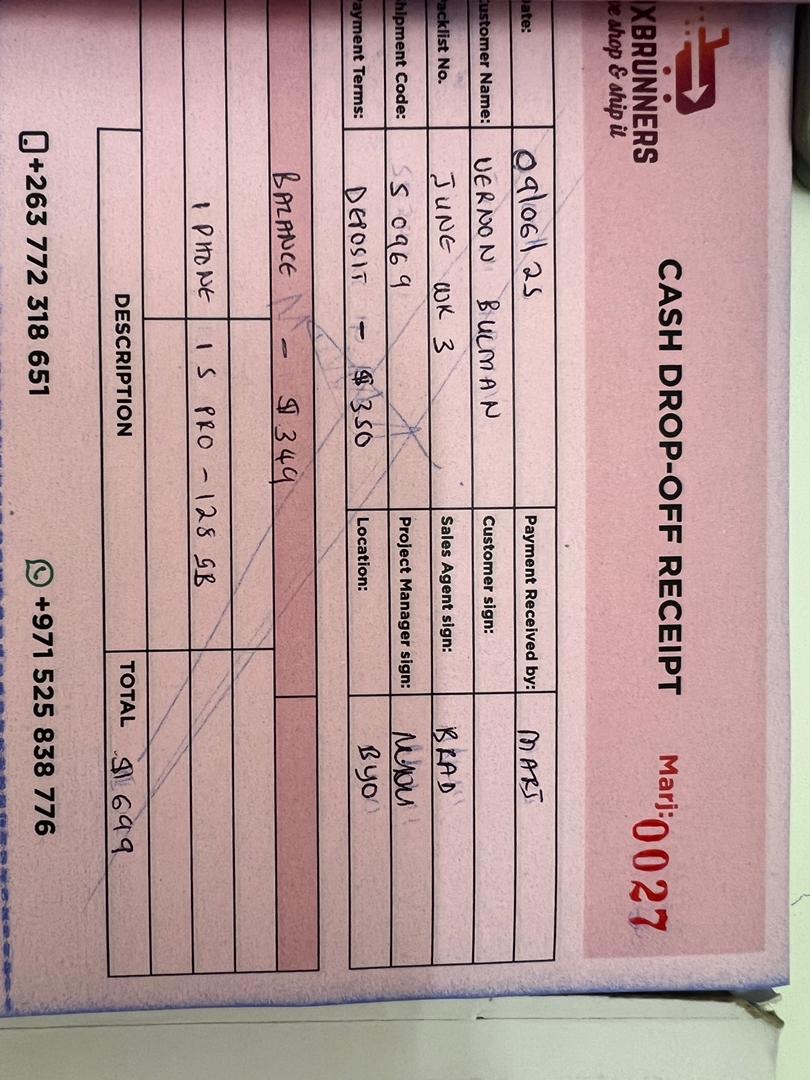 XBRUNNERS
e shop & ship it
CASH DROP-OFF RECEIPT
Marj: 0027
ate: 09/06/25 Payment Received by: MARJ
ustomer Name: VERNON BULMAN Customer sign:
acklist No. JUNE WK 3 Sales Agent sign: BRAD
hipment Code: SS 0969 Project Manager sign:
ayment Terms: DEPOSIT - $350 Location: BYO
BALANCE - $349
1 PHONE 15 PRO - 128 GB
DESCRIPTION TOTAL $699
+263 772 318 651 +971 525 838 776